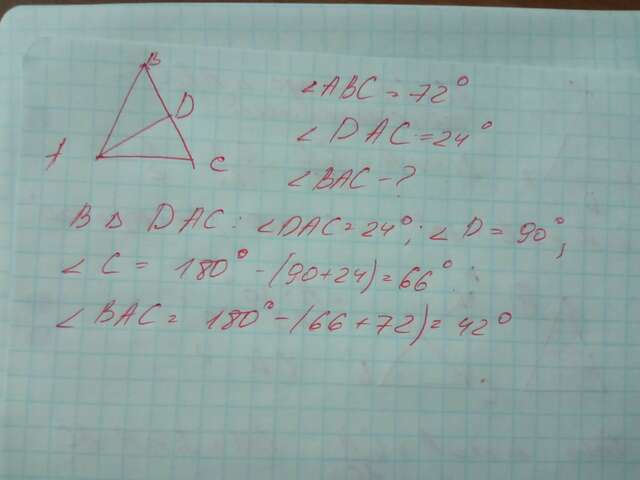 B
D
A
C
∠ABC = 72°
∠DAC = 24°
∠BAC - ?
В Δ DAC: ∠DAC = 24°; ∠D = 90°;
∠C = 180° - (90+24) = 66°
∠BAC = 180° - (66+72) = 42°